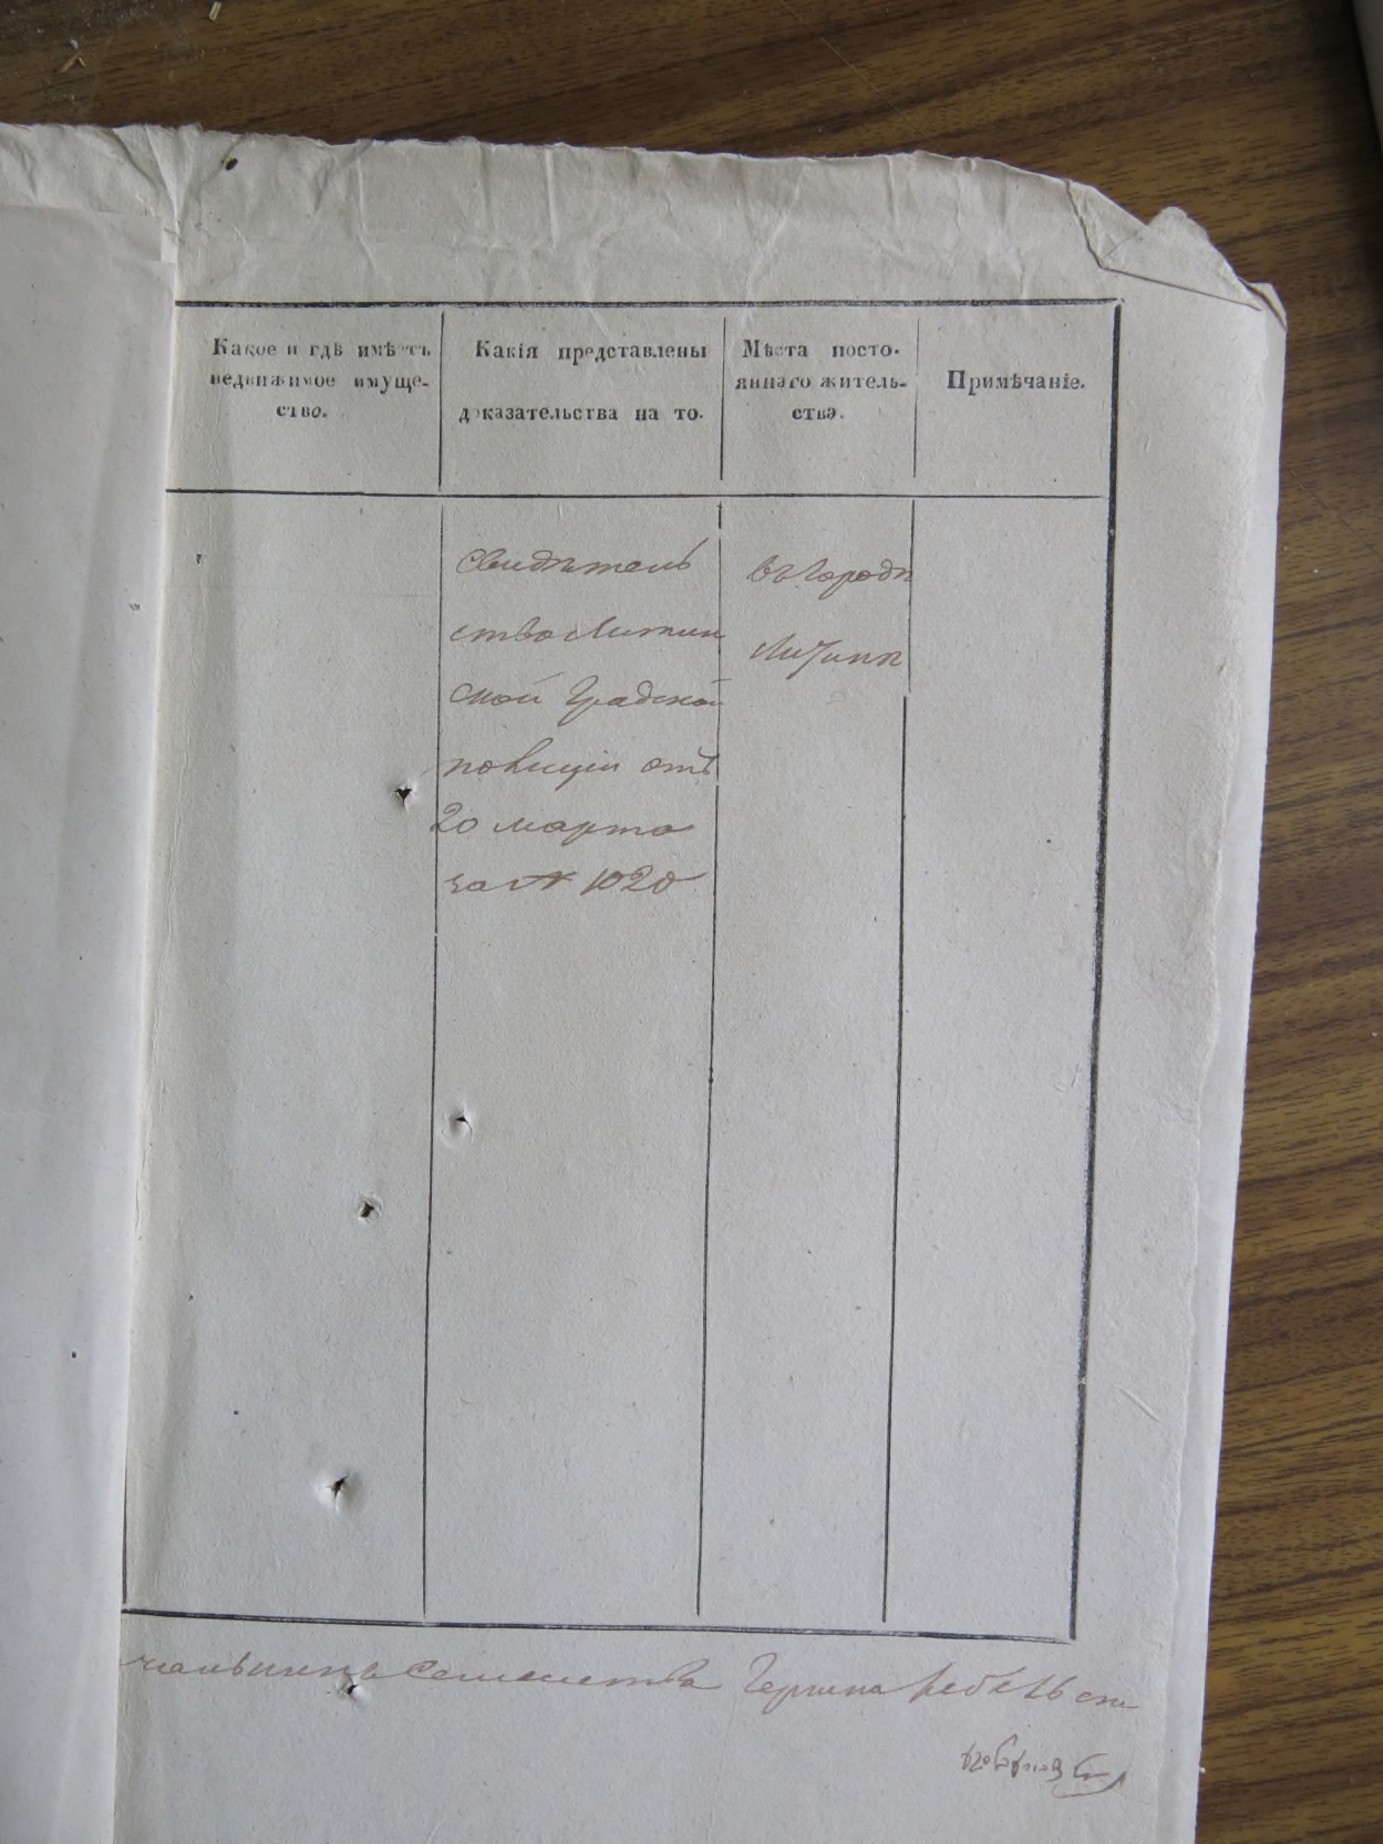 Какое и гдѣ имѣетъ
недвижимое имуще-
ство.
Какія представлены
доказательства на то.
Мѣста посто-
яннаго житель-
ства.
Примѣчаніе.
Свидѣтель
ство Литин
ской Градской
полиціи отъ
20 марта
за № 1020
въ городѣ
Литинѣ
чальникъ Семейства